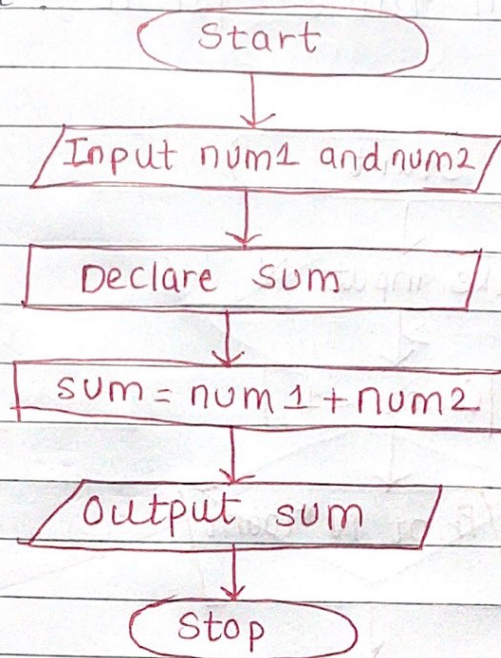 Start
Input num1 and num2
Declare sum
sum = num1 + num2
Output sum
Stop